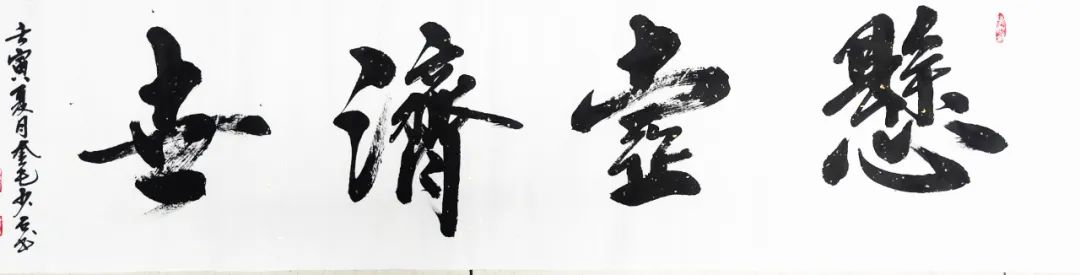 懸壺濟世
壬寅夏月金毛少石书